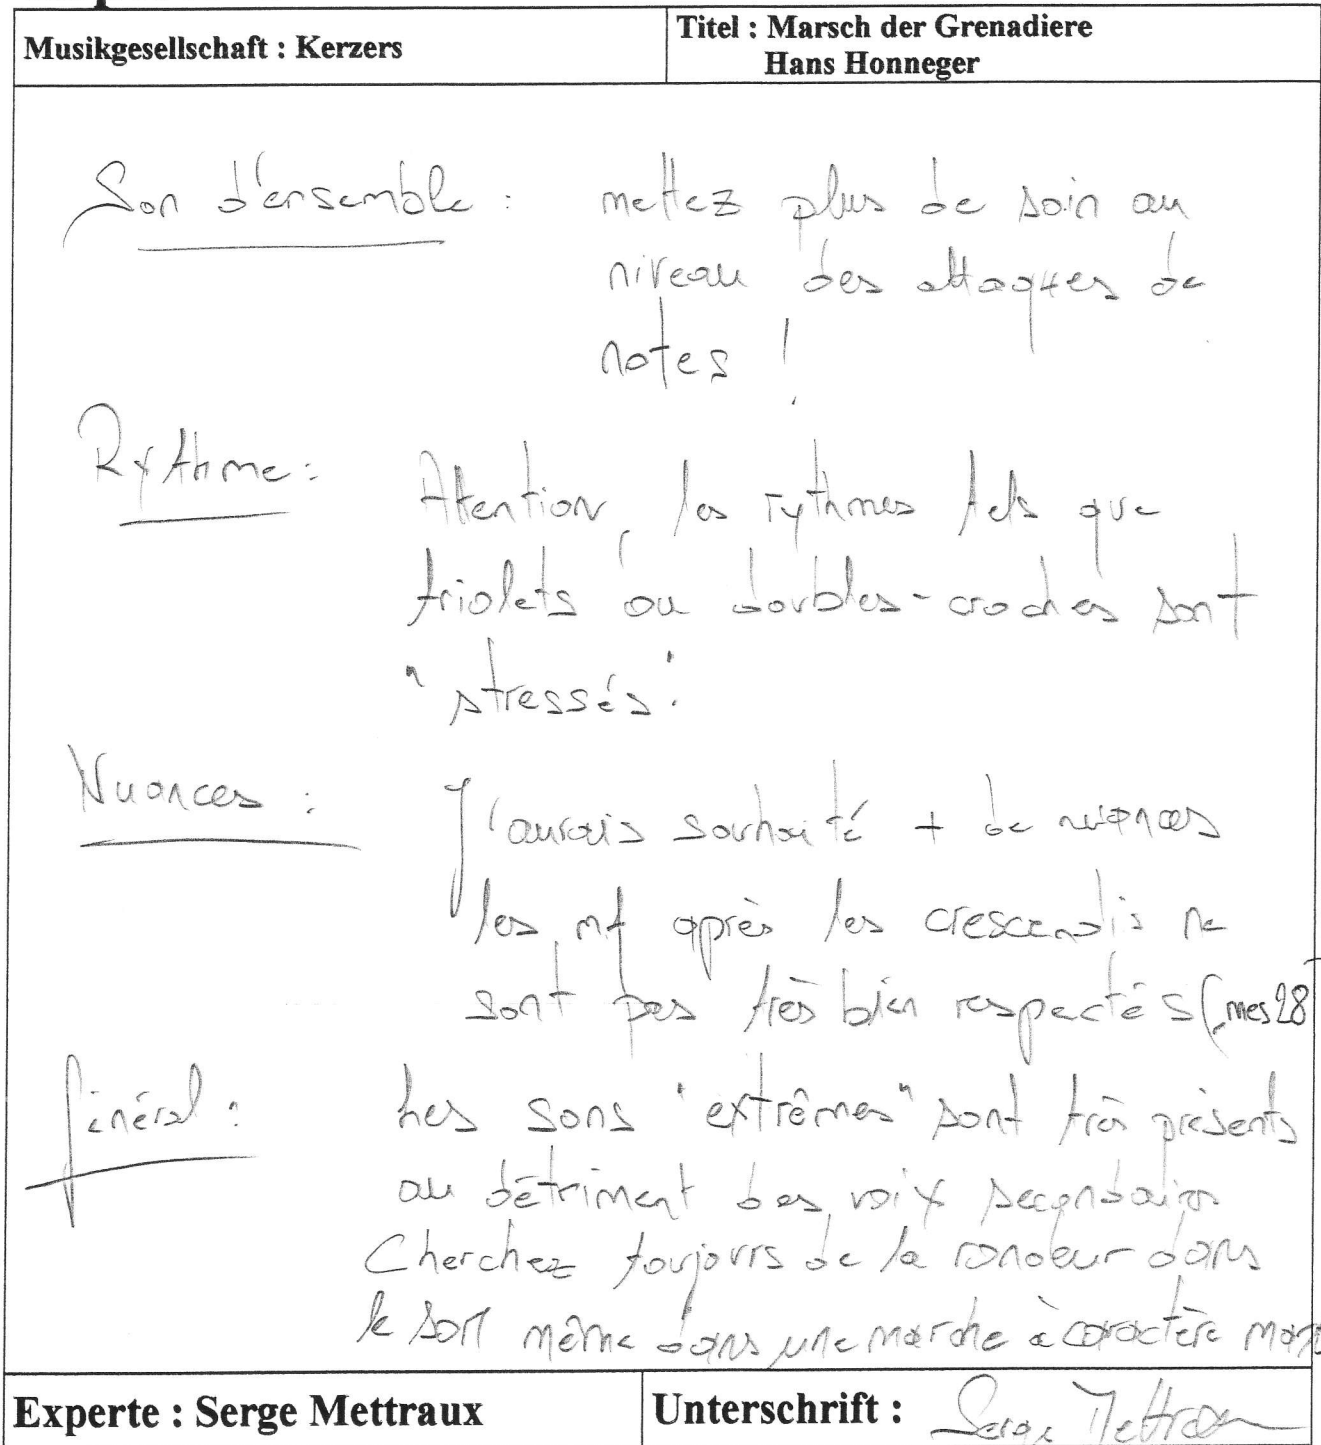 Musikgesellschaft : Kerzers
Titel : Marsch der Grenadiere
Hans Honneger
Son d'ensemble : mettez plus de soin au
niveau des attaques de
notes !
Rythme : Attention, les rythmes tels que
triolets ou doubles-croches sont
"stressés".
Nuances : J'aurais souhaité + de nuances
les mf après les crescendis ne
sont pas très bien respectés (mes 28
général : Les sons "extrêmes" sont très présents
au détriment des voix secondaires
Cherchez toujours de la rondeur dans
le son même dans une marche à caractère
Experte : Serge Mettraux
Unterschrift : Serge Mettraux